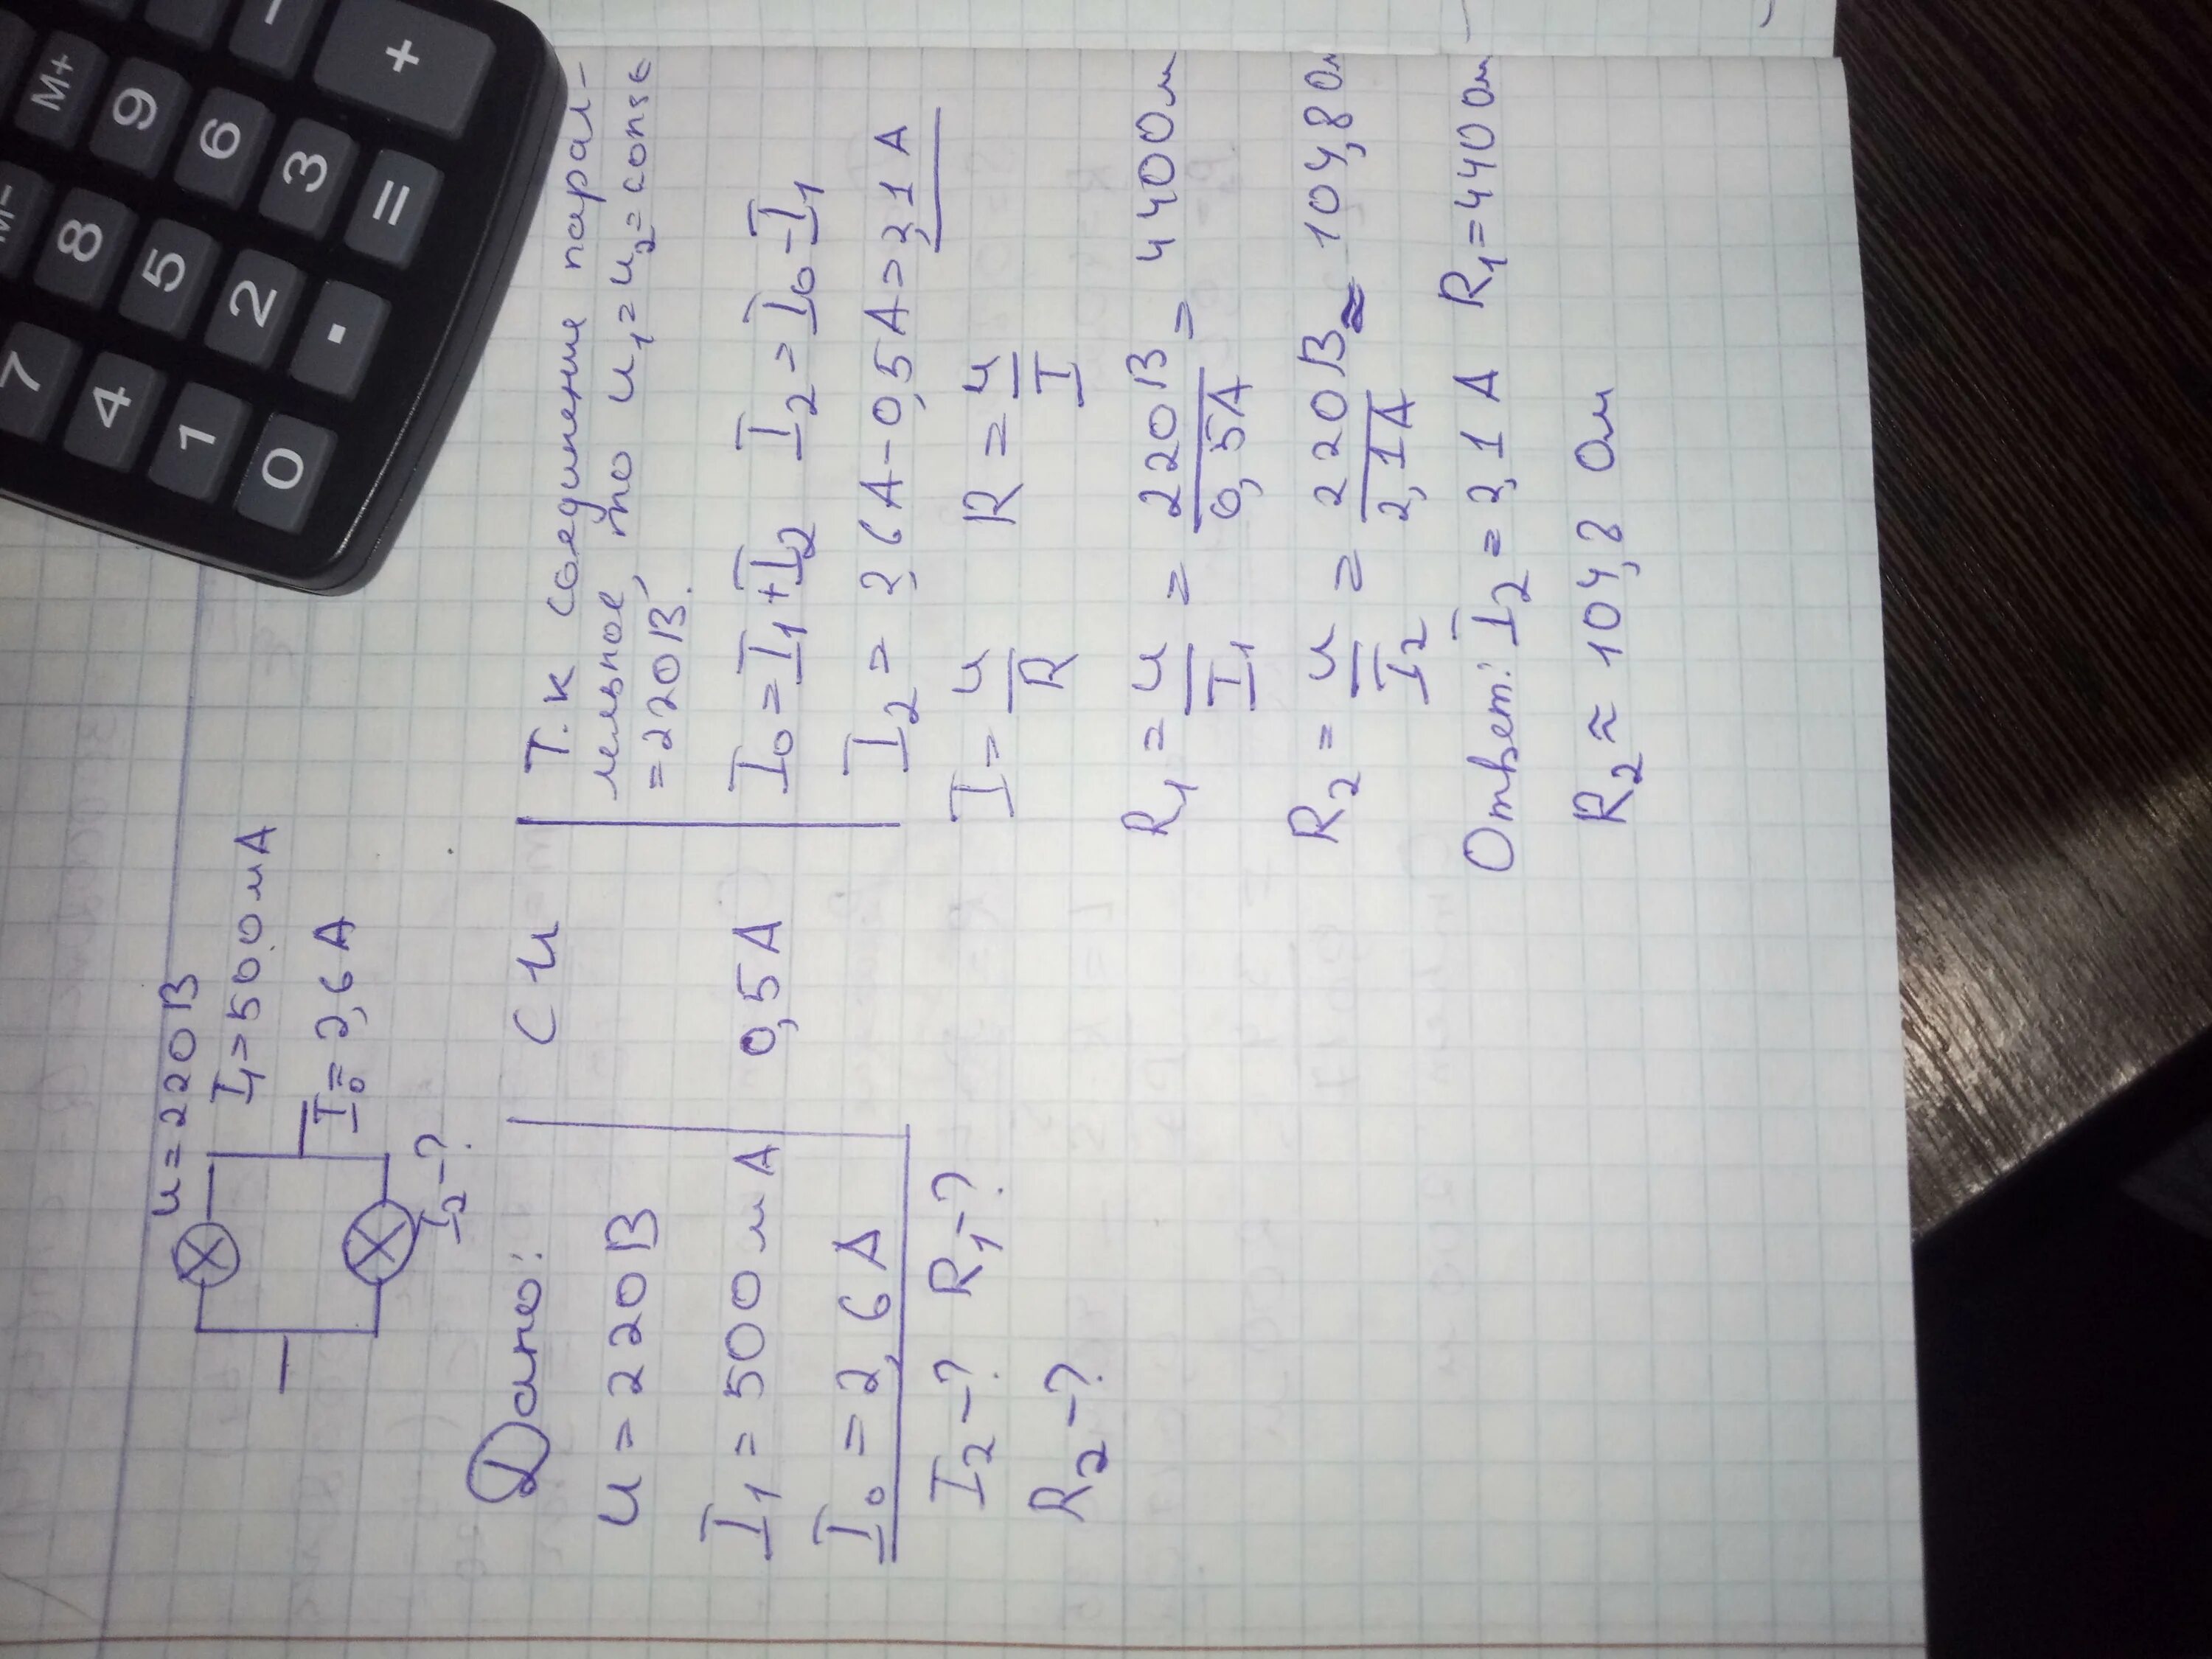 U=220В
I₁=500мА
I₀=2,6А
I₂-?
Дано:
U=220В
I₁=500мА
I₀=2,6А
I₂-? R₁-?
R₂-?
СИ
0,5А
Т.к соединение парал-
лельное, то U₁=U₂=const
=220В.
I₀=I₁+I₂ I₂=I₀-I₁
I₂=2,6А-0,5А=2,1А
I=U/R R=U/I
R₁=U/I₁=220В/0,5А=440Ом
R₂=U/I₂=220В/2,1А≈104,8Ом
Ответ: I₂=2,1А R₁=440Ом
R₂≈104,8Ом
M+
-
+
M-
9
6
3
=
8
5
2
.
7
4
1
0